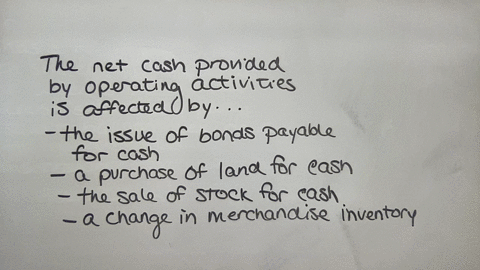 The net cash provided
by operating activities
is affected by...
- the issue of bonds payable
for cash
- a purchase of land for cash
- the sale of stock for cash
- a change in merchandise inventory